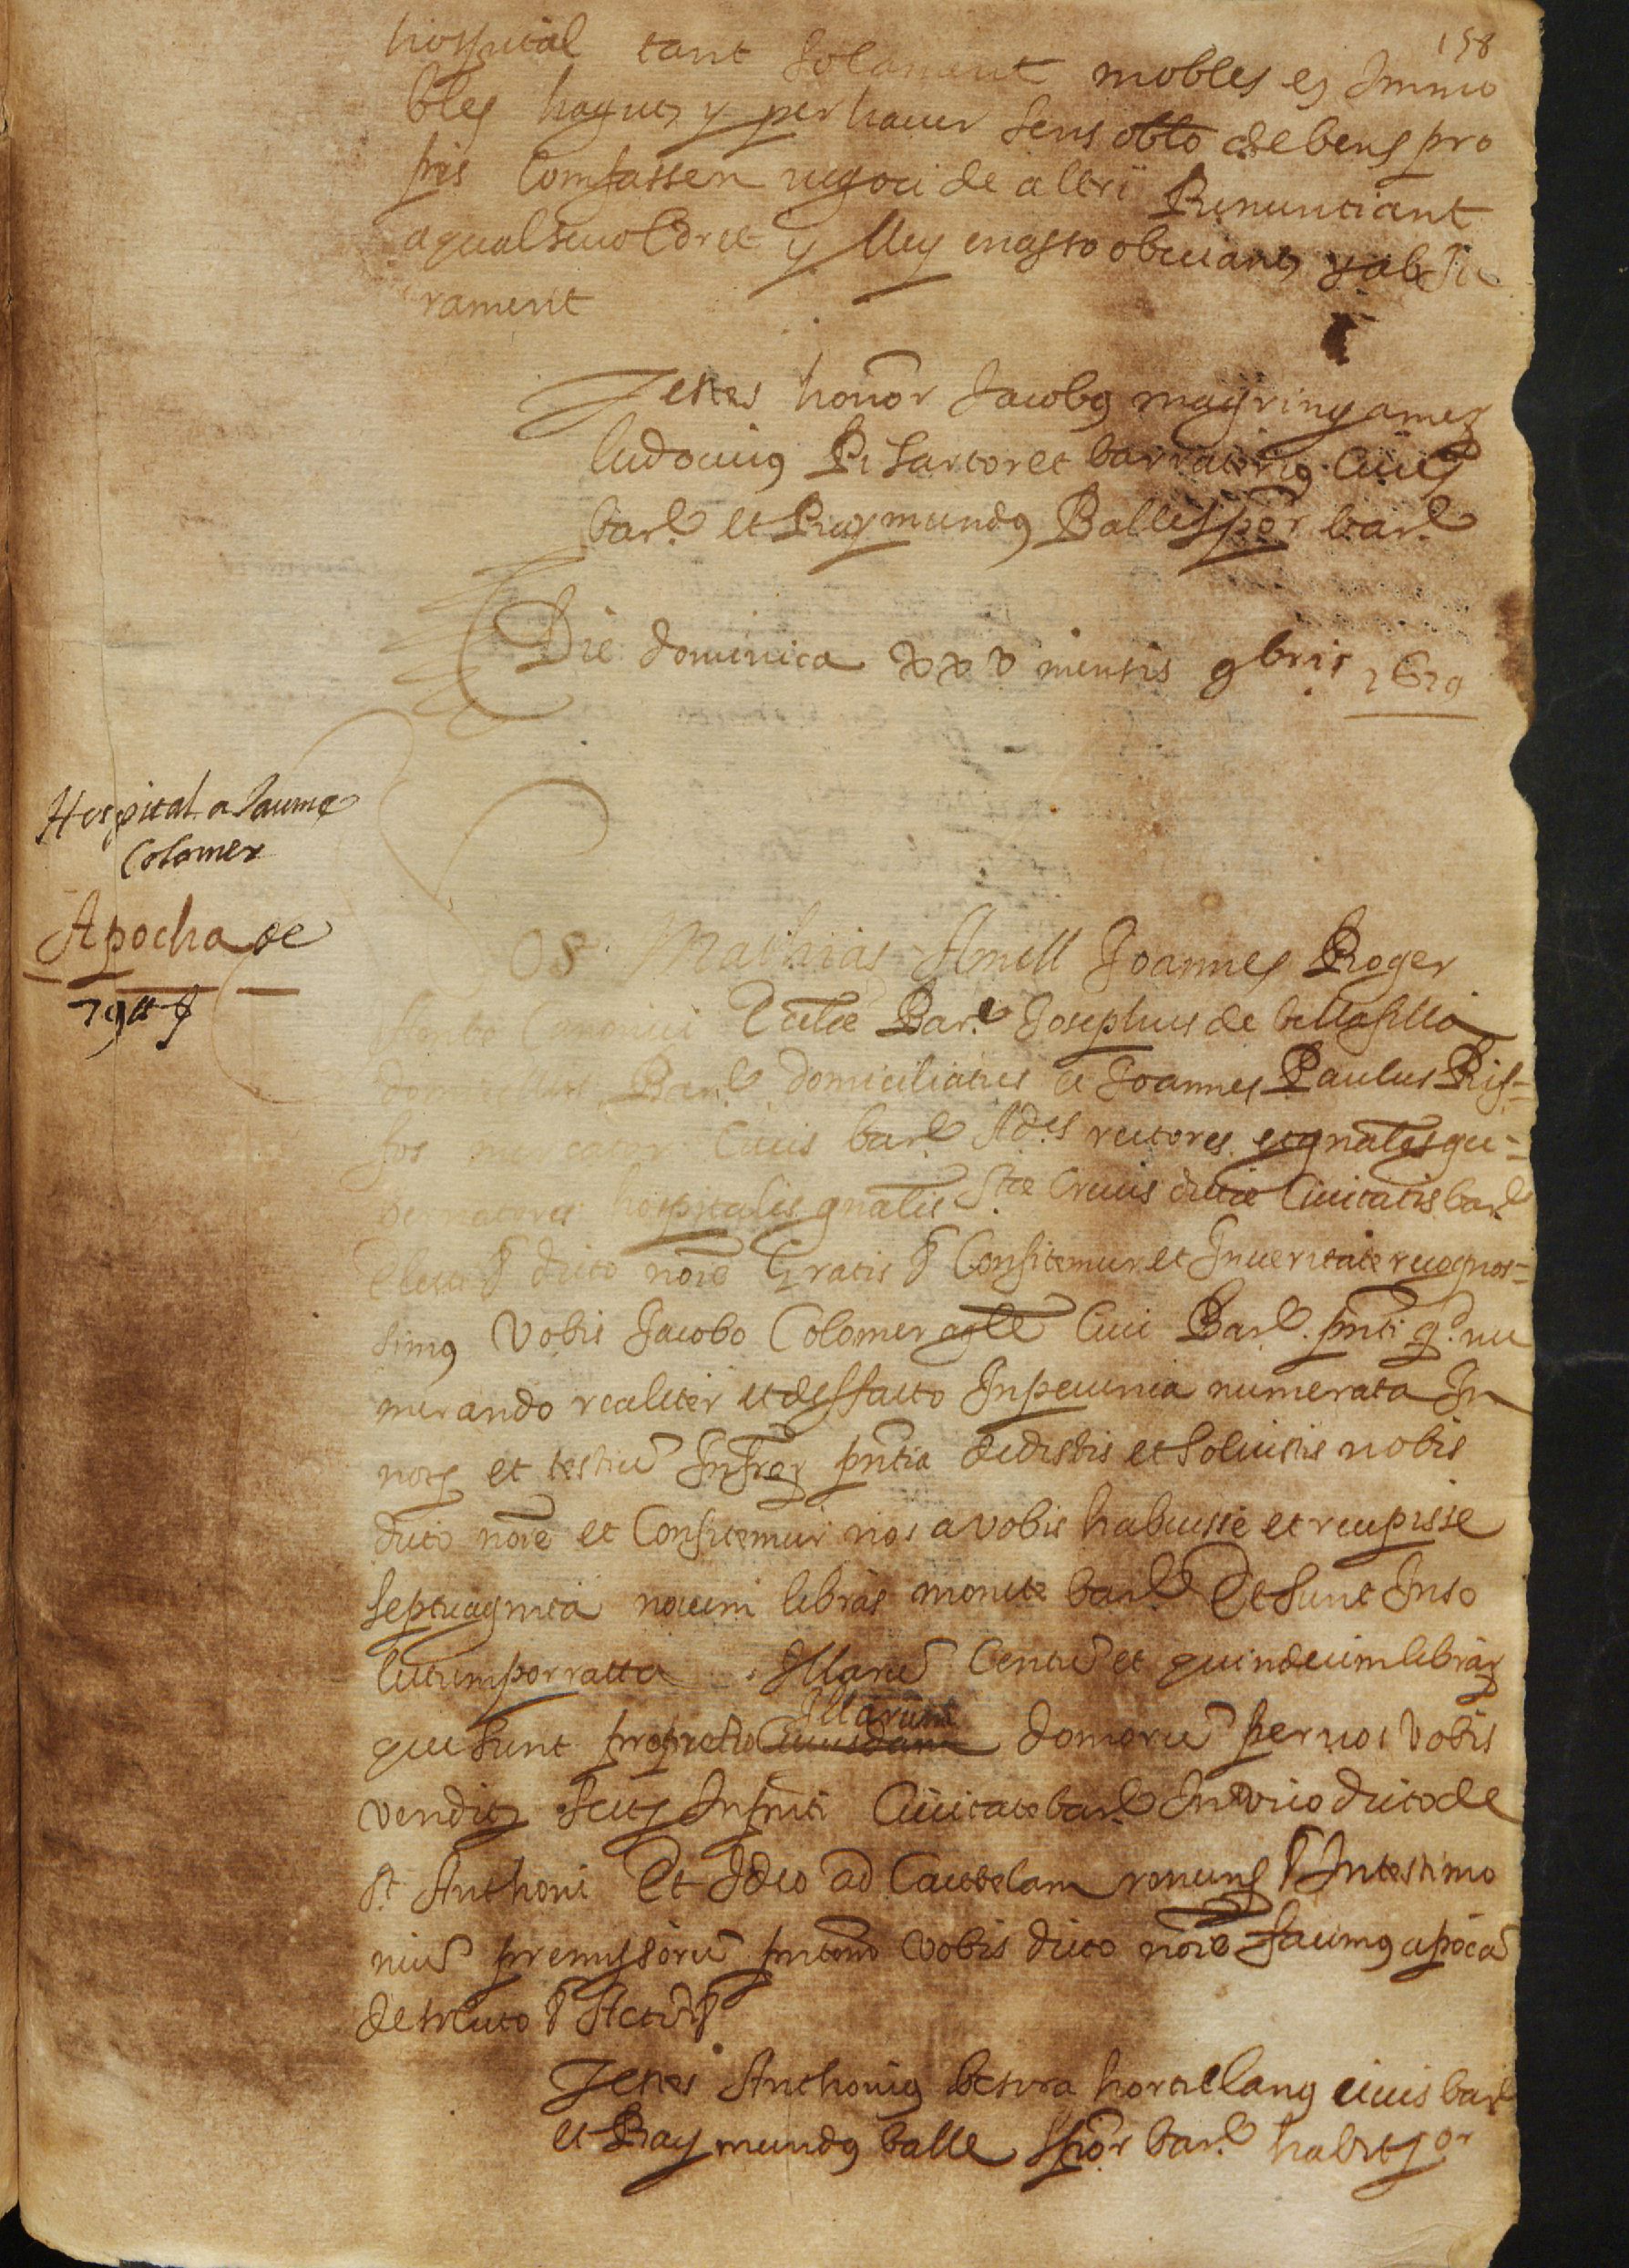 158
hospital tant solament mobles ey Immo
bles haguts y per hauer sens oblo de bens pro
pris Com fassen negoci de altri Renunciant
a qualseuol dret y lley en asso obuiants y ab Ju
rament
Testes honor Jacobus magriny
ludouicus Pi sartor et civis
barᵉ et Raymundus Balle sper barᵉ
Die dominica xxv mensis 9bris 1629
Hospital a Jaume
Colomer
Apocha de
79 ₶
os Mathias Amell Joannes Roger
Canonici Ecclᵉ Barᵉ Josephus de bellafilla
domicellus Barᵉ domiciliatus et Joannes Paulus Rif-
fos mercator Ciuis barᵉ Ades rectores et gnales gu-
bernatores hospitalis gnalis Stᵉ Crucis dictᵉ Ciuitatis barᵉ
dicto noīe Gratis Confitemur et In veritate recognos-
simus Vobis Jacobo Colomer Ciui Barᵉ pnti q. nu
merando realiter et de ffacto In pecunia numerata In
nors et testiū Infror pntia dedistis et soluistis nobis
dicto noīe et Confitemur nos a vobis habuisse et recepisse
septuaginta novem libras monete barᵉ Et sunt In so
lutum porratta Illarū Centū et quindecim librar
que sunt pro pretio Cuiusdam Illarum domorū per nos Vobis
vendit Scit In pnti Ciuitate barᵉ In vico dicto de
St Anthoni Et Ideo ad Cautelam renuns In testimo
niū premissorū vobis dicto noīe facimus apocā
de reuto Actū
Testes Anthonius hortelanus ciuis barᵉ
et Raymundus balle barᵉ habitor